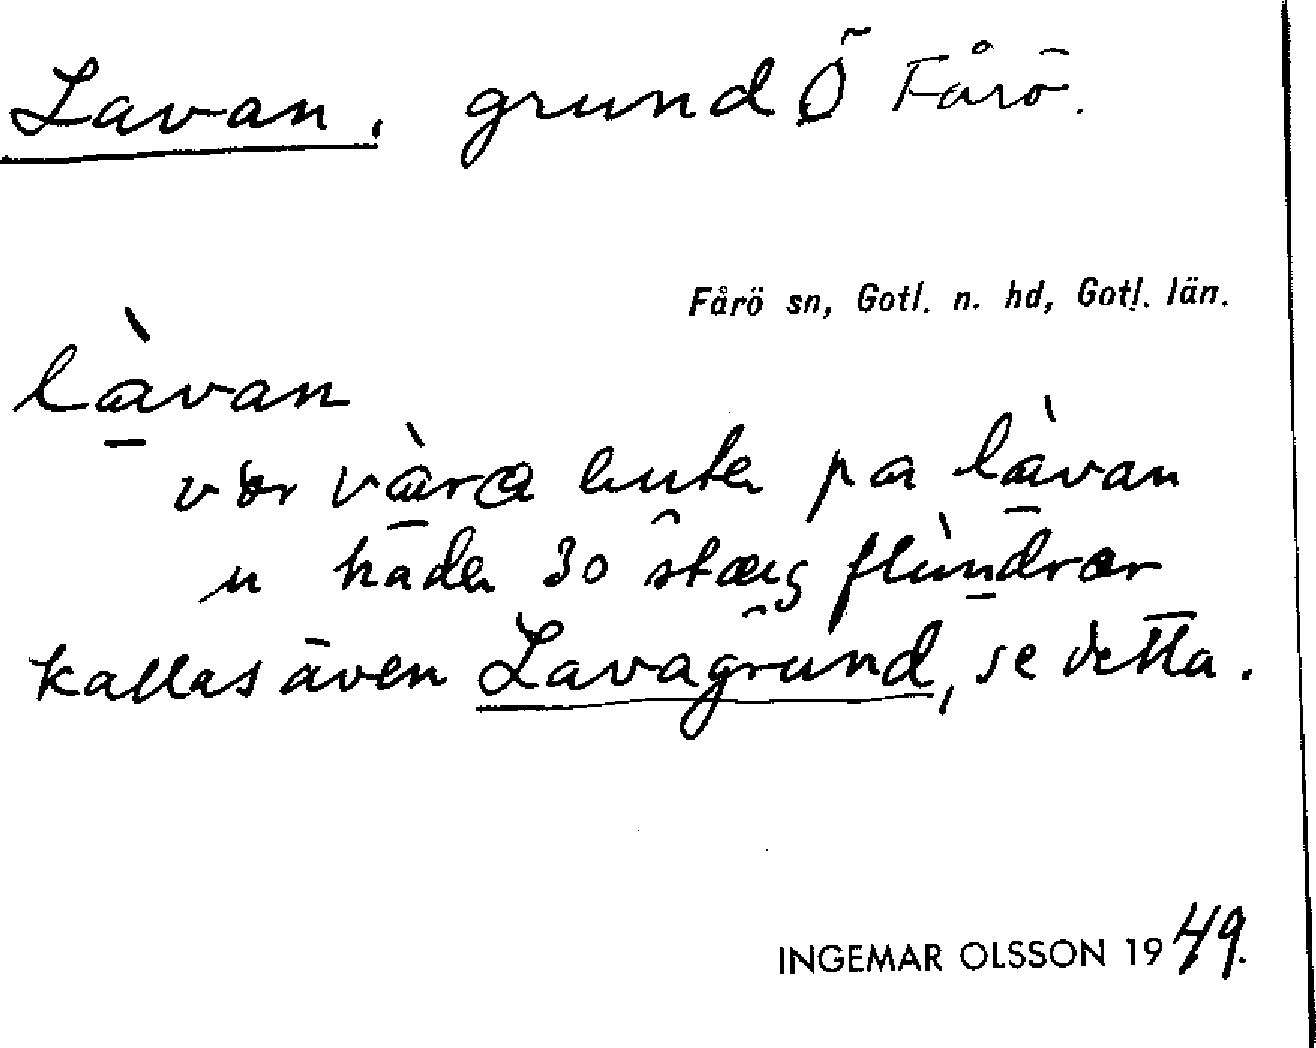 Lavan, grund Ö Fårö.
Fårö sn, Gotl. n. hd, Gotl. län.
là̱van
vær và̱ra pa là̱van
u 30 flùndrar
kallas även Lavagrund, se detta.
INGEMAR OLSSON 1949.